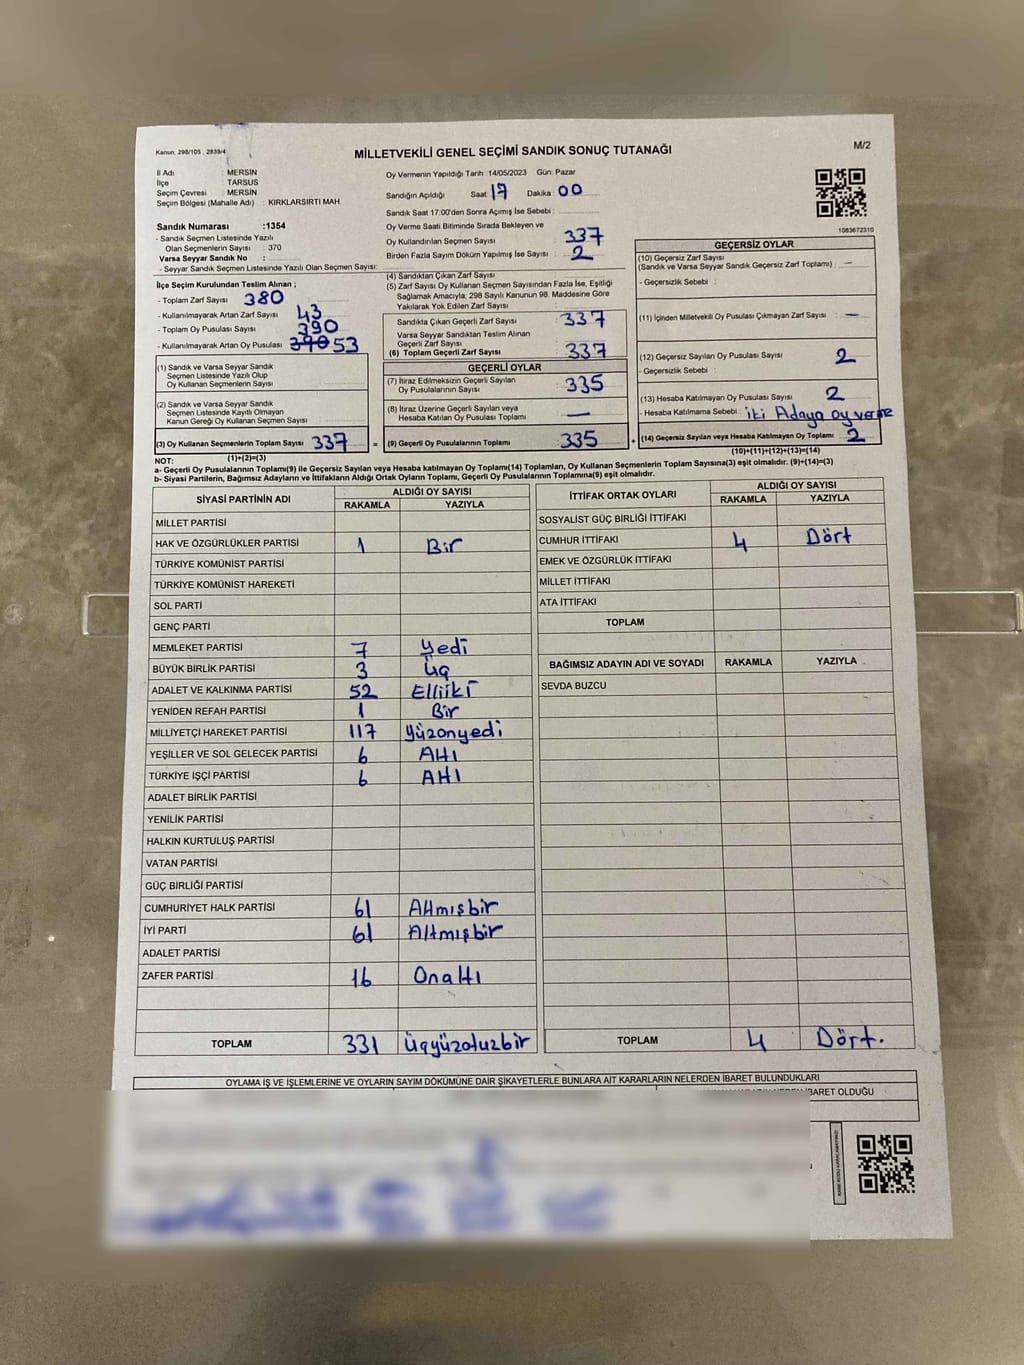 Kanun: 298/105 , 2839/4
MİLLETVEKİLİ GENEL SEÇİMİ SANDIK SONUÇ TUTANAĞI
M/2
İl Adı MERSİN
İlçe TARSUS
Seçim Çevresi MERSİN
Seçim Bölgesi (Mahalle Adı) : KIRKLARSIRTI MAH.
Sandık Numarası :1354
- Sandık Seçmen Listesinde Yazılı
Olan Seçmenlerin Sayısı : 370
Varsa Seyyar Sandık No :
- Seyyar Sandık Seçmen Listesinde Yazılı Olan Seçmen Sayısı:
İlçe Seçim Kurulundan Teslim Alınan ;
- Toplam Zarf Sayısı 380
- Kullanılmayarak Artan Zarf Sayısı : 43
- Toplam Oy Pusulası Sayısı 390
- Kullanılmayarak Artan Oy Pusulası : 390 53
(1) Sandık ve Varsa Seyyar Sandık
Seçmen Listesinde Yazılı Olup
Oy Kullanan Seçmenlerin Sayısı
(2) Sandık ve Varsa Seyyar Sandık
Seçmen Listesinde Kayıtlı Olmayan
Kanun Gereği Oy Kullanan Seçmen Sayısı
(3) Oy Kullanan Seçmenlerin Toplam Sayısı 337 =
(1)+(2)=(3)
Oy Vermenin Yapıldığı Tarih : 14/05/2023 Gün: Pazar
Sandığın Açıldığı Saat: 17 Dakika : 00
Sandık Saat 17.00'den Sonra Açımış İse Sebebi :
Oy Verme Saati Bitiminde Sırada Bekleyen ve
Oy Kullandırılan Seçmen Sayısı 337
Birden Fazla Sayım Döküm Yapılmış İse Sayısı : 2
(4) Sandıktan Çıkan Zarf Sayısı
(5) Zarf Sayısı Oy Kullanan Seçmen Sayısından Fazla İse, Eşitliği
Sağlamak Amacıyla; 298 Sayılı Kanunun 98. Maddesine Göre
Yakılarak Yok Edilen Zarf Sayısı :
Sandıkla Çıkan Geçerli Zarf Sayısı : 337
Varsa Seyyar Sandıktan Teslim Alınan
Geçerli Zarf Sayısı
(6) Toplam Geçerli Zarf Sayısı 337
GEÇERLİ OYLAR
(7) İtiraz Edilmeksizin Geçerli Sayılan
Oy Pusulalarının Sayısı : 335
(8) İtiraz Üzerine Geçerli Sayılan veya
Hesaba Katılan Oy Pusulası Toplamı —
(9) Geçerli Oy Pusulalarının Toplamı 335 +
1083672310
GEÇERSİZ OYLAR
(10) Geçersiz Zarf Sayısı
(Sandık ve Varsa Seyyar Sandık Geçersiz Zarf Toplamı) : —
- Geçersizlik Sebebi :
(11) İçinden Milletvekili Oy Pusulası Çıkmayan Zarf Sayısı : —
(12) Geçersiz Sayılan Oy Pusulası Sayısı : 2
- Geçersizlik Sebebi :
(13) Hesaba Katılmayan Oy Pusulası Sayısı 2
- Hesaba Katılmama Sebebi : iki Adaya oy verme
(14) Geçersiz Sayılan veya Hesaba Katılmayan Oy Toplamı 2
(10)+(11)+(12)+(13)=(14)
NOT:
a- Geçerli Oy Pusulalarının Toplamı(9) ile Geçersiz Sayılan veya Hesaba katılmayan Oy Toplamı(14) Toplamları, Oy Kullanan Seçmenlerin Toplam Sayısına(3) eşit olmalıdır. (9)+(14)=(3)
b- Siyasi Partilerin, Bağımsız Adayların ve İttifakların Aldığı Ortak Oyların Toplamı, Geçerli Oy Pusulalarının Toplamına(9) eşit olmalıdır.
SİYASİ PARTİNİN ADI ALDIĞI OY SAYISI
RAKAMLA YAZIYLA
MİLLET PARTİSİ
HAK VE ÖZGÜRLÜKLER PARTİSİ 1 Bir
TÜRKİYE KOMÜNİST PARTİSİ
TÜRKİYE KOMÜNİST HAREKETİ
SOL PARTİ
GENÇ PARTİ
MEMLEKET PARTİSİ 7 Yedi
BÜYÜK BİRLİK PARTİSİ 3 Üç
ADALET VE KALKINMA PARTİSİ 52 Elliiki
YENİDEN REFAH PARTİSİ 1 Bir
MİLLİYETÇİ HAREKET PARTİSİ 117 Yüzonyedi
YEŞİLLER VE SOL GELECEK PARTİSİ 6 Altı
TÜRKİYE İŞÇİ PARTİSİ 6 Altı
ADALET BİRLİK PARTİSİ
YENİLİK PARTİSİ
HALKIN KURTULUŞ PARTİSİ
VATAN PARTİSİ
GÜÇ BİRLİĞİ PARTİSİ
CUMHURİYET HALK PARTİSİ 61 Altmışbir
İYİ PARTİ 61 Altmışbir
ADALET PARTİSİ
ZAFER PARTİSİ 16 Onaltı
TOPLAM 331 Üçyüzotuzbir
İTTİFAK ORTAK OYLARI ALDIĞI OY SAYISI
RAKAMLA YAZIYLA
SOSYALİST GÜÇ BİRLİĞİ İTTİFAKI
CUMHUR İTTİFAKI 4 Dört
EMEK VE ÖZGÜRLÜK İTTİFAKI
MİLLET İTTİFAKI
ATA İTTİFAKI
TOPLAM
BAĞIMSIZ ADAYIN ADI VE SOYADI RAKAMLA YAZIYLA
SEVDA BUZCU
TOPLAM 4 Dört.
OYLAMA İŞ VE İŞLEMLERİNE VE OYLARIN SAYIM DÖKÜMÜNE DAİR ŞİKAYETLERLE BUNLARA AİT KARARLARIN NELERDEN İBARET BULUNDUKLARI
İBARET OLDUĞU